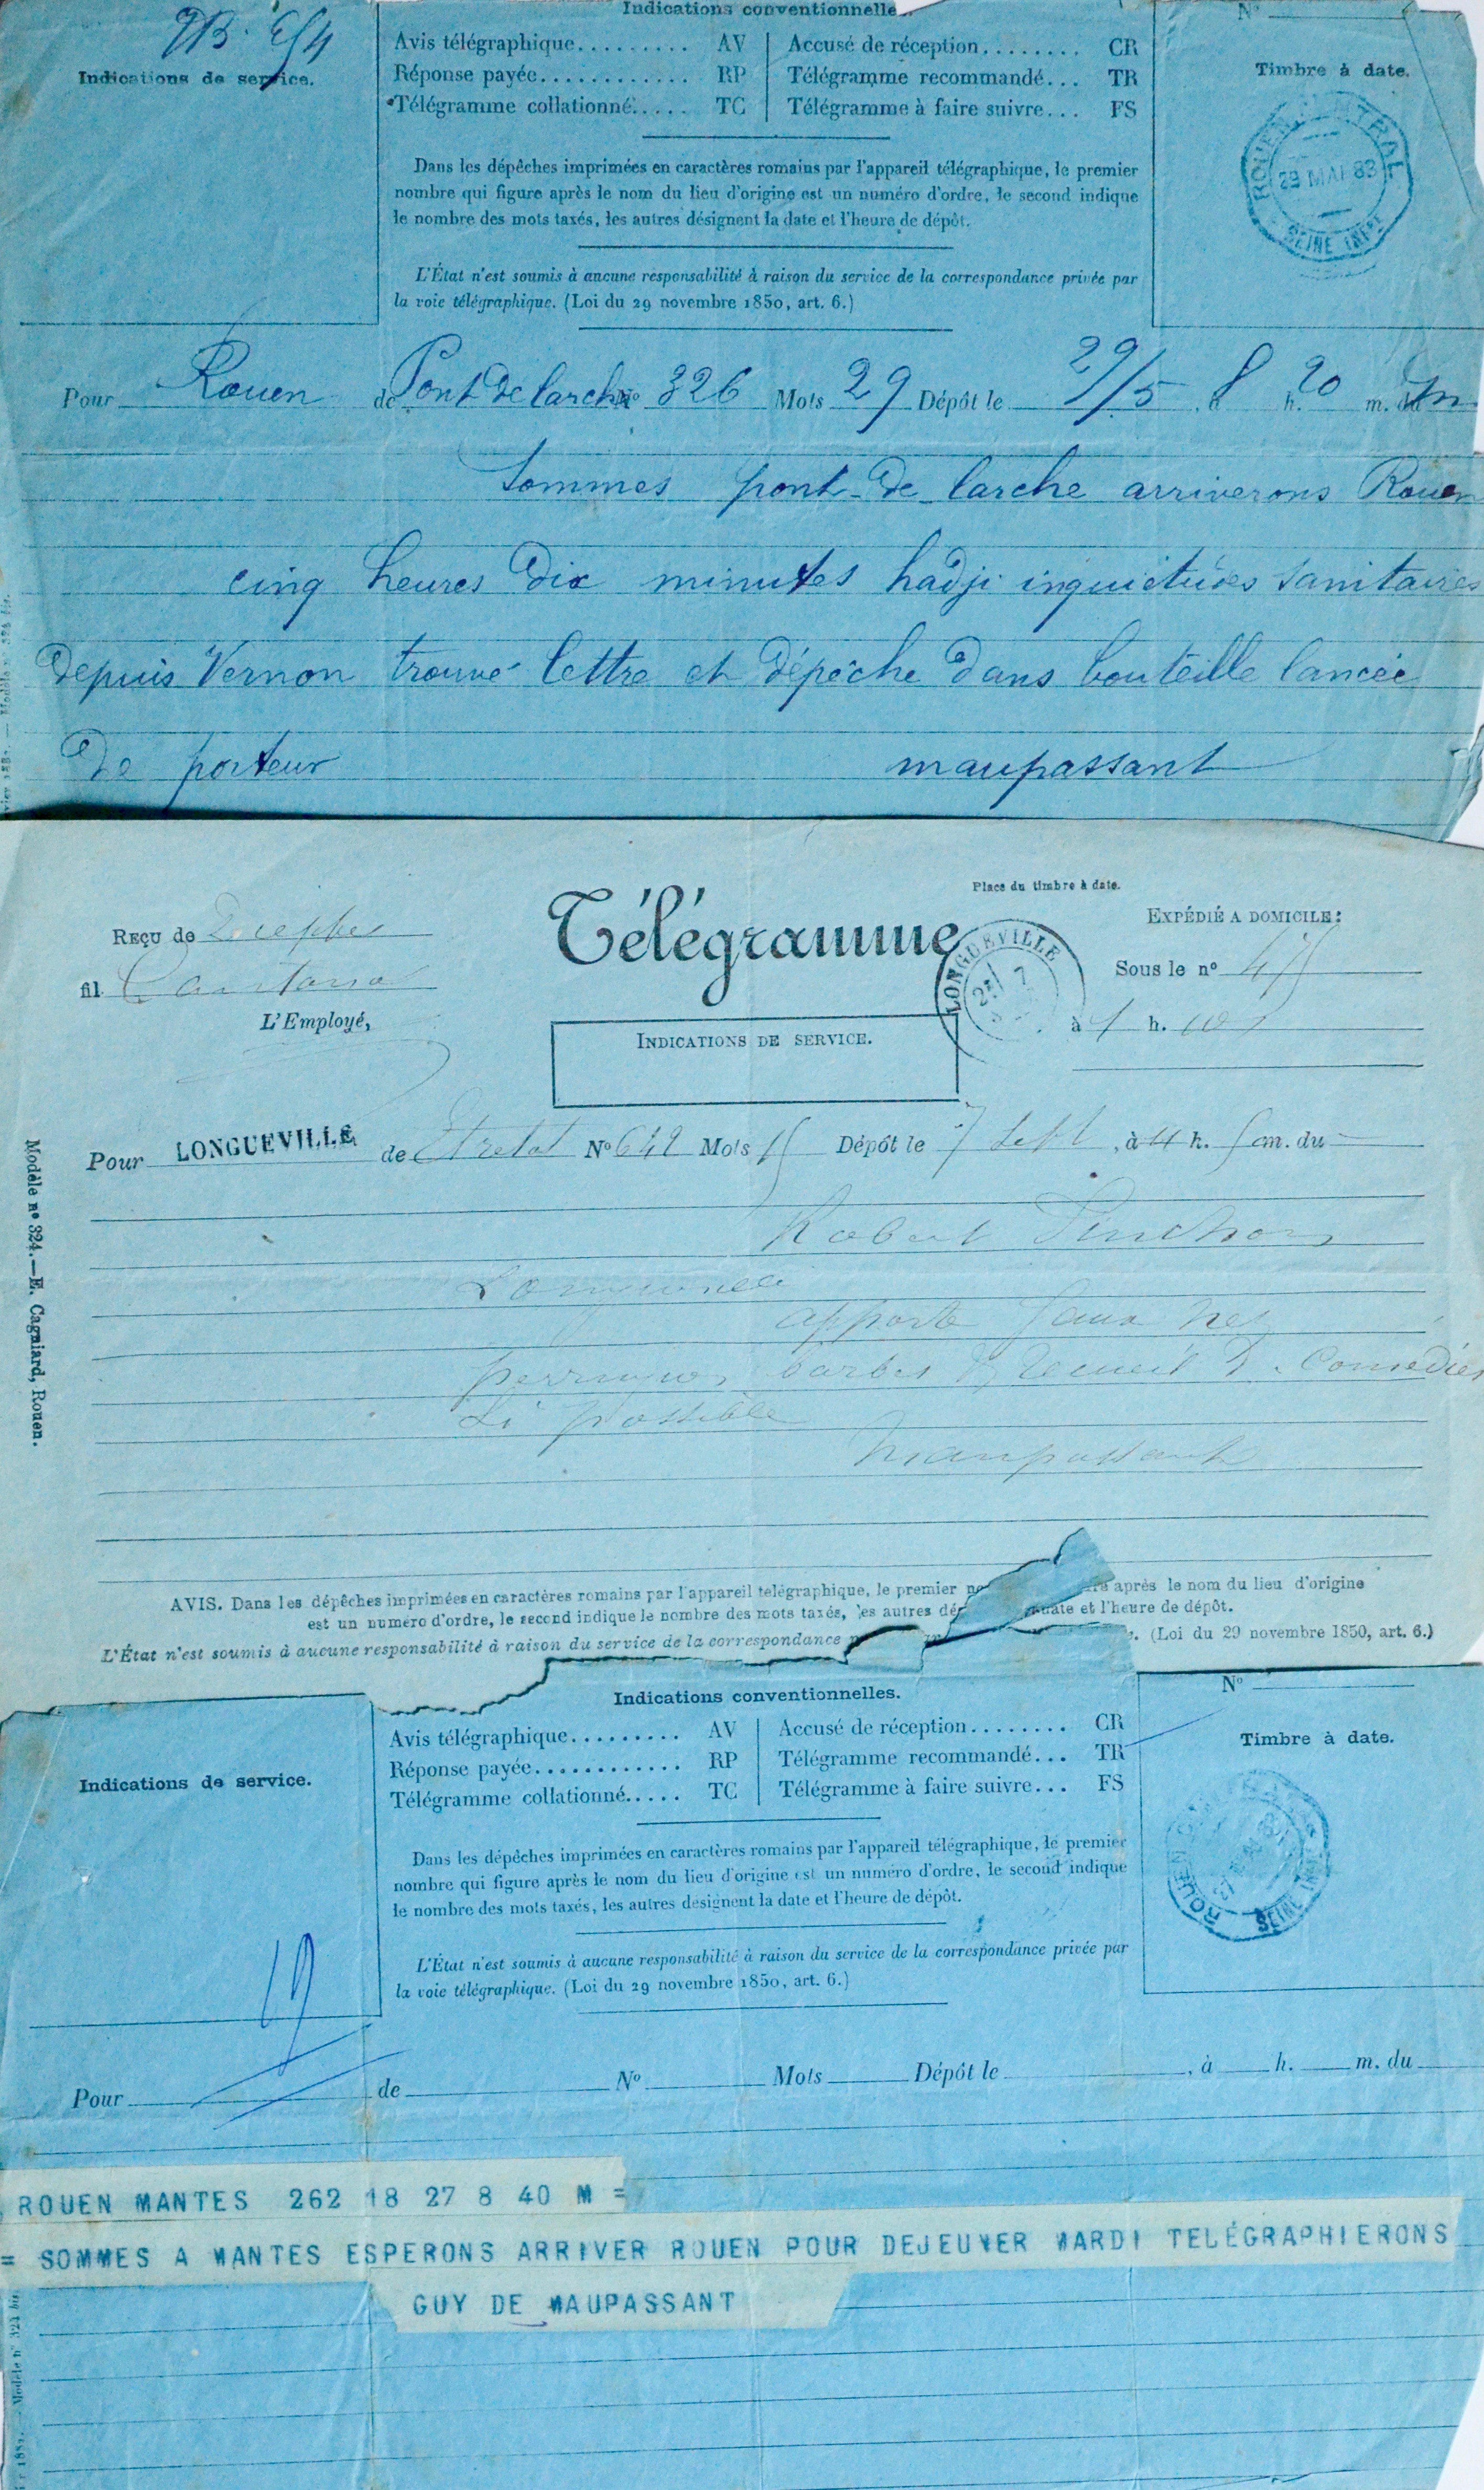 Indications conventionnelles.
N°
Indications de service.
Avis télégraphique......... AV
Réponse payée............ RP
Télégramme collationné..... TC
Accusé de réception........ CR
Télégramme recommandé... TR
Télégramme à faire suivre... FS
Timbre à date.
ROUEN CENTRAL
29 MAI 83
SEINE INFRE
Dans les dépêches imprimées en caractères romains par l'appareil télégraphique, le premier
nombre qui figure après le nom du lieu d'origine est un numéro d'ordre, le second indique
le nombre des mots taxés, les autres désignent la date et l'heure de dépôt.
L'État n'est soumis à aucune responsabilité à raison du service de la correspondance privée par
la voie télégraphique. (Loi du 29 novembre 1850, art. 6.)
Pour Rouen de Pont de larche N° 326 Mots 29 Dépôt le 29/5 à 8 h. 20 m. du m
Sommes pont-de-larche arriverons Rouen
cinq heures dix minutes hadji inquiétudes sanitaires
depuis Vernon trouvé lettre et dépêche dans bouteille lancée
de porteur maupassant
Télégramme
Place du timbre à date.
REÇU de Dieppe
fil
L'Employé,
EXPÉDIÉ A DOMICILE:
Sous le n°
à h.
LONGUEVILLE
7
INDICATIONS DE SERVICE.
Pour LONGUEVILLE de Etretat N° 642 Mots 15 Dépôt le 7 Sept, à 4 h. 5 m. du
Robert Pinchon
Longueville
apporte faux nez
perruques barbes et recueil de Comédies
Si possible
Maupassant
Modèle n° 324.—E. Cagniard, Rouen.
AVIS. Dans les dépêches imprimées en caractères romains par l'appareil télégraphique, le premier après le nom du lieu d'origine
est un numéro d'ordre, le second indique le nombre des mots taxés, les autres date et l'heure de dépôt.
L'État n'est soumis à aucune responsabilité à raison du service de la correspondance (Loi du 29 novembre 1850, art. 6.)
Indications conventionnelles.
N°
Indications de service.
Avis télégraphique......... AV
Réponse payée............ RP
Télégramme collationné..... TC
Accusé de réception........ CR
Télégramme recommandé... TR
Télégramme à faire suivre... FS
Timbre à date.
ROUEN
SEINE INFRE
Dans les dépêches imprimées en caractères romains par l'appareil télégraphique, le premier
nombre qui figure après le nom du lieu d'origine est un numéro d'ordre, le second indique
le nombre des mots taxés, les autres désignent la date et l'heure de dépôt.
L'État n'est soumis à aucune responsabilité à raison du service de la correspondance privée par
la voie télégraphique. (Loi du 29 novembre 1850, art. 6.)
Pour de N° Mots Dépôt le , à h. m. du
ROUEN MANTES 262 18 27 8 40 M =
= SOMMES A MANTES ESPERONS ARRIVER ROUEN POUR DEJEUNER MARDI TELÉGRAPHIERONS
GUY DE MAUPASSANT